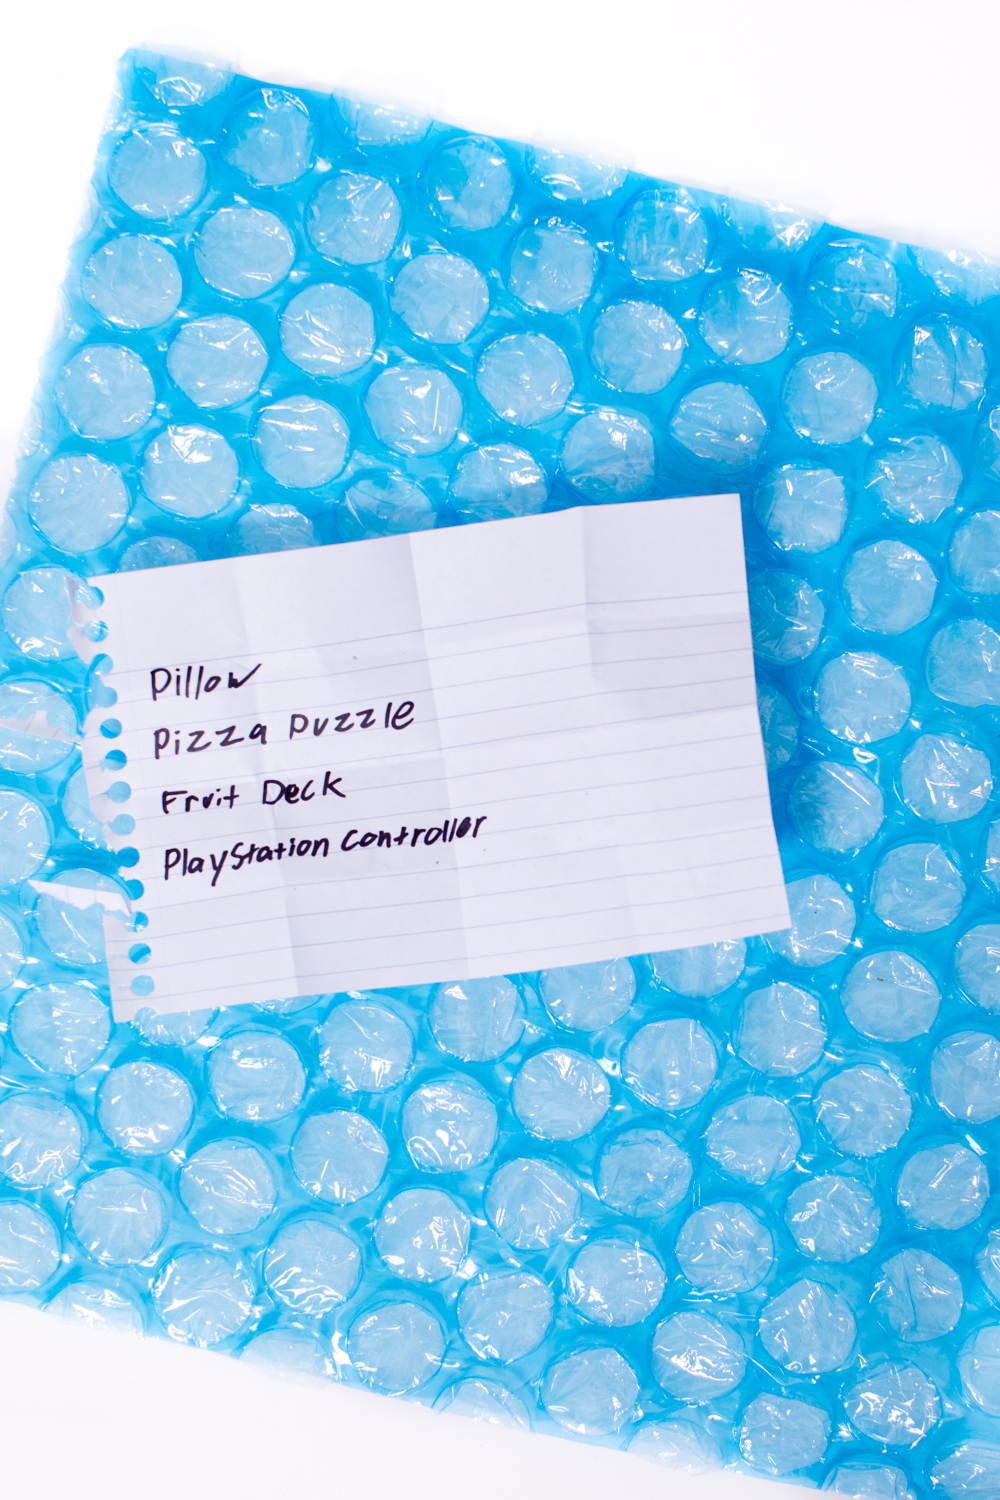 Pillow
Pizza Puzzle
Fruit Deck
PlayStation Controller